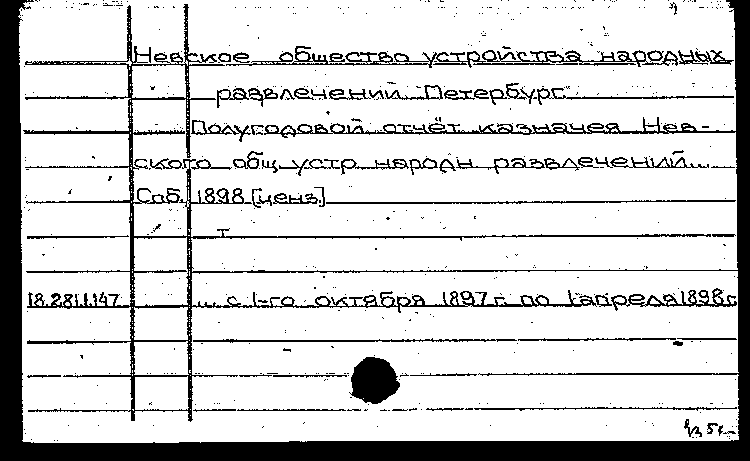 Невское общество устройства народных
развлечений Петербург
Полугодовой отчёт казначея Нев-
ского общ. устр. народн. развлечений...
Спб. 1898 [ценз.]
т
18.281.1.147 ... с 1-го октября 1897 г. по 1 апреля 1898 г.